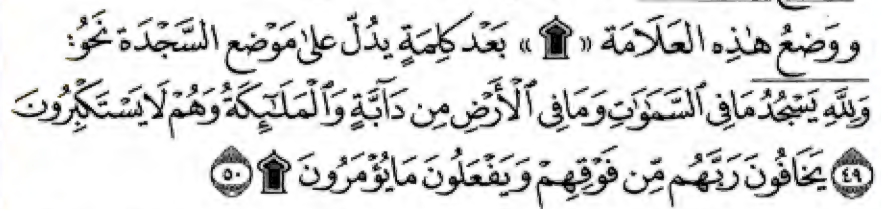 ووَضعُ هٰذِه العَلَامَة « ۩ » بَعْد كَلِمَةٍ يدُلّ علىٰ مَوْضع السَّجْدَة نَحْوُ:
وَلِلَّهِ يَسْجُدُ مَا فِي ٱلسَّمَٰوَٰتِ وَمَا فِي ٱلْأَرْضِ مِن دَآبَّةٍ وَٱلْمَلَٰٓئِكَةُ وَهُمْ لَا يَسْتَكْبِرُونَ
﴿٤٩﴾ يَخَافُونَ رَبَّهُم مِّن فَوْقِهِمْ وَيَفْعَلُونَ مَا يُؤْمَرُونَ ۩ ﴿٥٠﴾